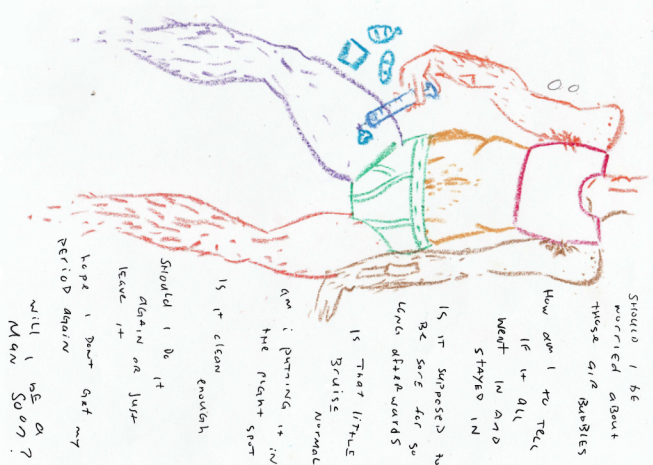 SHOULD I BE
WORRIED ABOUT
THOSE AIR BUBBLES
HOW AM I TO TELL
IF IT ALL
WENT IN AND
STAYED IN
IS IT SUPPOSED TO
BE SORE FOR SO
LONG AFTERWARDS
IS THAT LITTLE
BRUISE NORMAL
AM I PUTTING IT IN
THE RIGHT SPOT
IS IT CLEAN
ENOUGH
SHOULD I DO IT
AGAIN OR JUST
LEAVE IT
HOPE I DONT GET MY
PERIOD AGAIN
WILL I BE A
MAN SOON?